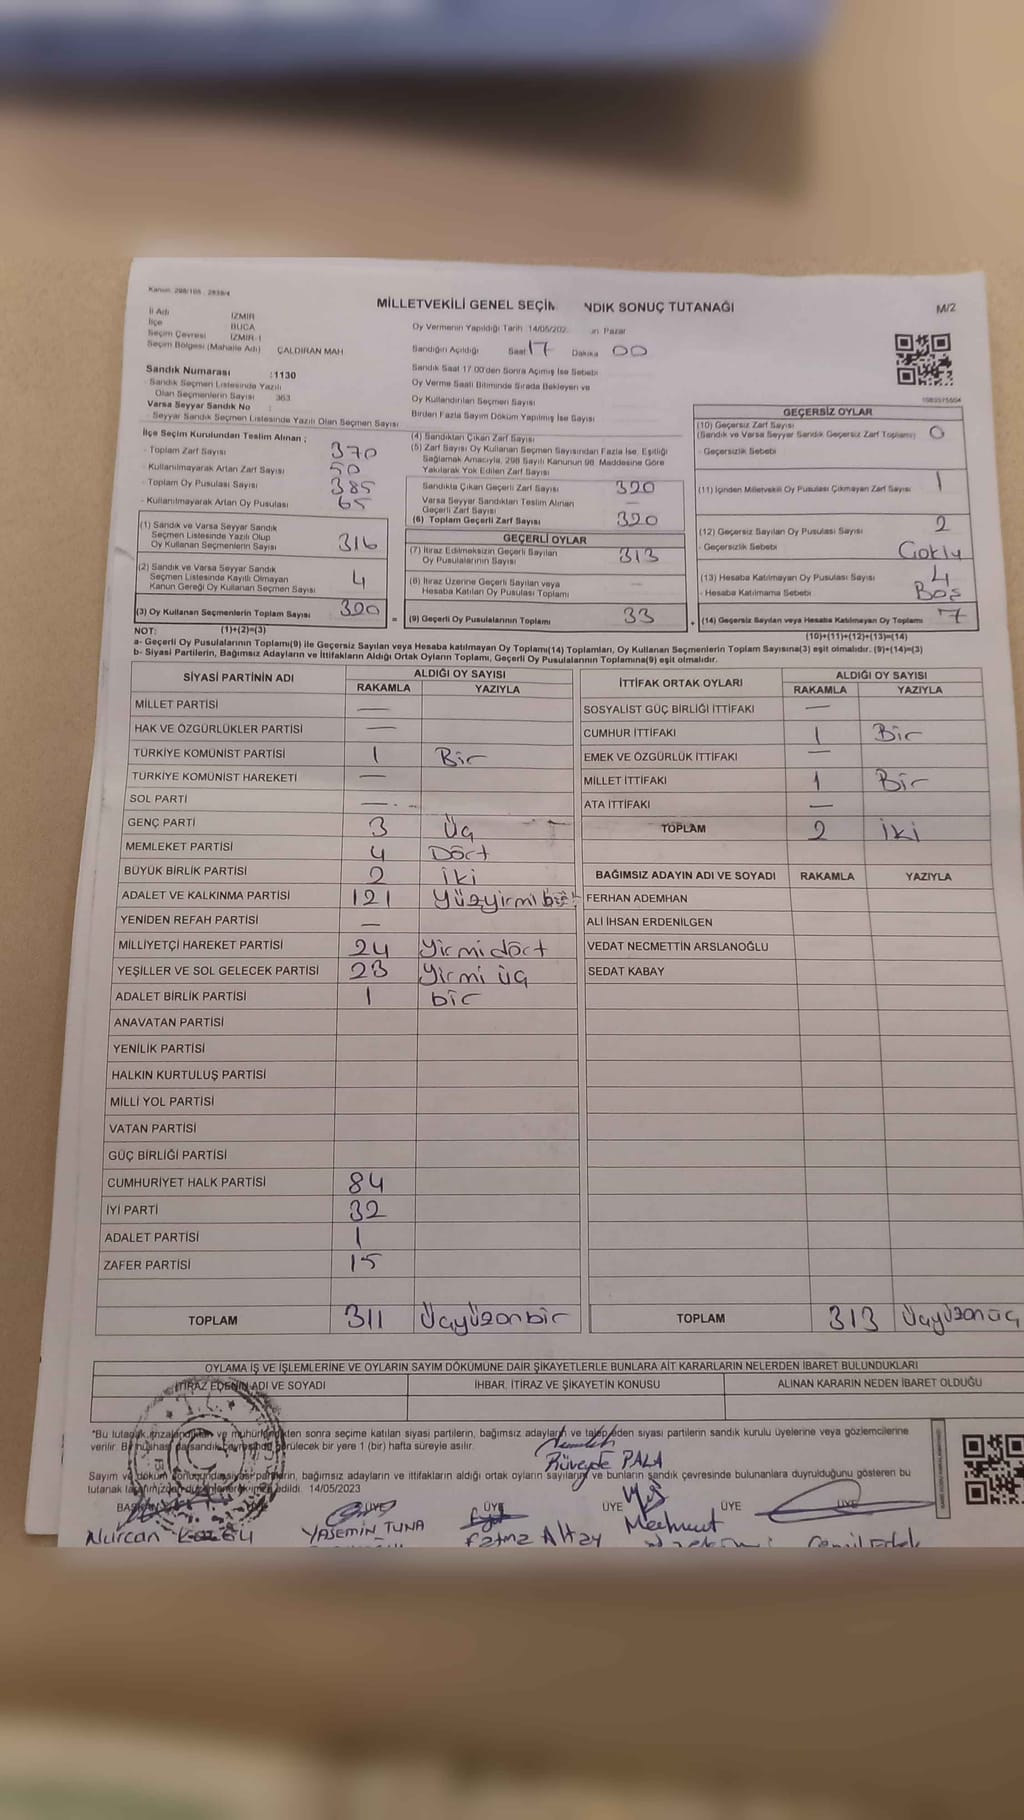 Kanun: 298/105 - 2839/4
MİLLETVEKİLİ GENEL SEÇİM NDIK SONUÇ TUTANAĞI
M/2
İl Adı İZMİR
İlçe BUCA
Seçim Çevresi İZMİR-1
Seçim Bölgesi (Mahalle Adı) ÇALDIRAN MAH
Oy Vermenin Yapıldığı Tarih 14/05/202 Pazar
Sandığın Açıldığı Saat 17 Dakika 00
Sandık Numarası :1130
- Sandık Seçmen Listesinde Yazılı
Olan Seçmenlerin Sayısı 363
Varsa Seyyar Sandık No :
- Seyyar Sandık Seçmen Listesinde Yazılı Olan Seçmen Sayısı
Sandık Saat 17.00'den Sonra Açılmış İse Sebebi
Oy Verme Saati Bitiminde Sırada Bekleyen ve
Oy Kullandırılan Seçmen Sayısı
Birden Fazla Sayım Döküm Yapılmış İse Sayısı
İlçe Seçim Kurulundan Teslim Alınan ;
- Toplam Zarf Sayısı 370
- Kullanılmayarak Artan Zarf Sayısı 50
- Toplam Oy Pusulası Sayısı 385
- Kullanılmayarak Artan Oy Pusulası 65
(1) Sandık ve Varsa Seyyar Sandık
Seçmen Listesinde Yazılı Olup
Oy Kullanan Seçmenlerin Sayısı 316
(2) Sandık ve Varsa Seyyar Sandık
Seçmen Listesinde Kayıtlı Olmayan
Kanun Gereği Oy Kullanan Seçmen Sayısı 4
(3) Oy Kullanan Seçmenlerin Toplam Sayısı 320
(1)+(2)=(3)
(4) Sandıktan Çıkan Zarf Sayısı
(5) Zarf Sayısı Oy Kullanan Seçmen Sayısından Fazla İse, Eşitliği
Sağlamak Amacıyla, 298 Sayılı Kanunun 98. Maddesine Göre
Yakılarak Yok Edilen Zarf Sayısı
Sandıkta Çıkan Geçerli Zarf Sayısı 320
Varsa Seyyar Sandıktan Teslim Alınan
Geçerli Zarf Sayısı —
(6) Toplam Geçerli Zarf Sayısı 320
GEÇERLİ OYLAR
(7) İtiraz Edilmeksizin Geçerli Sayılan
Oy Pusulalarının Sayısı 313
(8) İtiraz Üzerine Geçerli Sayılan veya
Hesaba Katılan Oy Pusulası Toplamı —
= (9) Geçerli Oy Pusulalarının Toplamı 33
GEÇERSİZ OYLAR
(10) Geçersiz Zarf Sayısı
(Sandık ve Varsa Seyyar Sandık Geçersiz Zarf Toplamı) 0
- Geçersizlik Sebebi
(11) İçinden Milletvekili Oy Pusulası Çıkmayan Zarf Sayısı 1
(12) Geçersiz Sayılan Oy Pusulası Sayısı 2
- Geçersizlik Sebebi Çoklu
(13) Hesaba Katılmayan Oy Pusulası Sayısı 4
- Hesaba Katılmama Sebebi Boş
+ (14) Geçersiz Sayılan veya Hesaba Katılmayan Oy Toplamı 7
(10)+(11)+(12)+(13)=(14)
NOT:
a- Geçerli Oy Pusulalarının Toplamı(9) ile Geçersiz Sayılan veya Hesaba katılmayan Oy Toplamı(14) Toplamları, Oy Kullanan Seçmenlerin Toplam Sayısına(3) eşit olmalıdır. (9)+(14)=(3)
b- Siyasi Partilerin, Bağımsız Adayların ve İttifakların Aldığı Oy Ortak Oyların Toplamı, Geçerli Oy Pusulalarının Toplamına(9) eşit olmalıdır.
SİYASİ PARTİNİN ADI ALDIĞI OY SAYISI
RAKAMLA YAZIYLA
MİLLET PARTİSİ —
HAK VE ÖZGÜRLÜKLER PARTİSİ —
TÜRKİYE KOMÜNİST PARTİSİ 1 Bir
TÜRKİYE KOMÜNİST HAREKETİ —
SOL PARTİ —
GENÇ PARTİ 3 Üç
MEMLEKET PARTİSİ 4 Dört
BÜYÜK BİRLİK PARTİSİ 2 iki
ADALET VE KALKINMA PARTİSİ 121 Yüzyirmi bir
YENİDEN REFAH PARTİSİ —
MİLLİYETÇİ HAREKET PARTİSİ 24 Yirmi dört
YEŞİLLER VE SOL GELECEK PARTİSİ 23 Yirmi üç
ADALET BİRLİK PARTİSİ 1 bir
ANAVATAN PARTİSİ
YENİLİK PARTİSİ
HALKIN KURTULUŞ PARTİSİ
MİLLİ YOL PARTİSİ
VATAN PARTİSİ
GÜÇ BİRLİĞİ PARTİSİ
CUMHURİYET HALK PARTİSİ 84
İYİ PARTİ 32
ADALET PARTİSİ 1
ZAFER PARTİSİ 15
TOPLAM 311 Üçyüzonbir
İTTİFAK ORTAK OYLARI ALDIĞI OY SAYISI
RAKAMLA YAZIYLA
SOSYALİST GÜÇ BİRLİĞİ İTTİFAKI —
CUMHUR İTTİFAKI 1 Bir
EMEK VE ÖZGÜRLÜK İTTİFAKI —
MİLLET İTTİFAKI 1 Bir
ATA İTTİFAKI —
TOPLAM 2 iki
BAĞIMSIZ ADAYIN ADI VE SOYADI RAKAMLA YAZIYLA
FERHAN ADEMHAN
ALİ İHSAN ERDENİLGEN
VEDAT NECMETTİN ARSLANOĞLU
SEDAT KABAY
TOPLAM 313 Üçyüzonüç
OYLAMA İŞ VE İŞLEMLERİNE VE OYLARIN SAYIM DÖKÜMÜNE DAİR ŞİKAYETLERLE BUNLARA AİT KARARLARIN NELERDEN İBARET BULUNDUKLARI
İTİRAZ EDENİN ADI VE SOYADI İHBAR, İTİRAZ VE ŞİKAYETİN KONUSU ALINAN KARARIN NEDEN İBARET OLDUĞU
"Bu tutanak imzalandıktan ve mühürlendikten sonra seçime katılan siyasi partilerin, bağımsız adayların ve talep eden siyasi partilerin sandık kurulu üyelerine veya gözlemcilerine
verilir. Bir nüshası da sandık çevresinde görülecek bir yere 1 (bir) hafta süreyle asılır.
Rüveyde PALA
Sayım ve döküm sonucunda siyasi partilerin, bağımsız adayların ve ittifakların aldığı ortak oyların sayılarını ve bunların sandık çevresinde bulunanlara duyrulduğunu gösteren bu
tutanak tarafımızdan düzenlenerek imza edildi. 14/05/2023
BAŞKAN ÜYE ÜYE ÜYE ÜYE ÜYE
Nurcan YASEMİN TUNA Fatma Altay Mehmut